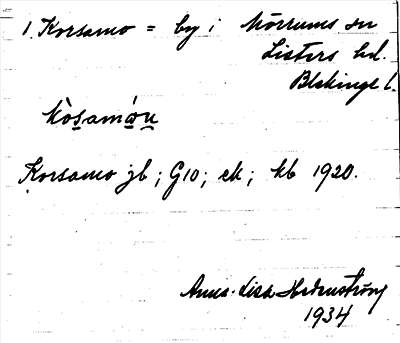 1. Korsamo = by i Mörrums sn
Listers hd.
Blekinge l.
Korsamo jb; G10; ek; kb 1920.
Anna-Lisa Hedenström
1934